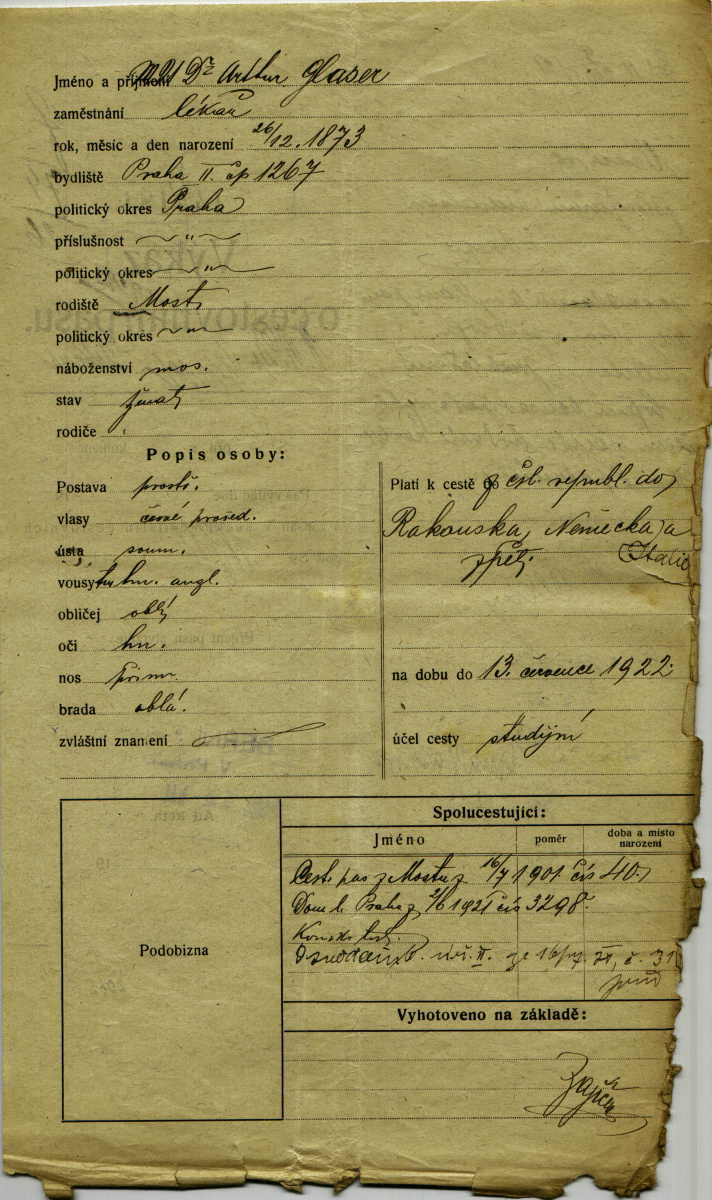 Jméno a příjmení MUDr Arthur Glaser
zaměstnání lékař
rok, měsíc a den narození 26/12. 1873
bydliště Praha II. čp 1267
politický okres Praha
příslušnost ~ " ~
politický okres ~ " ~
rodiště Most
politický okres ~ " ~
náboženství mos.
stav ženatý
rodiče
Popis osoby:
Postava prostř.
vlasy černé prošed.
ústa soum.
vousy hn. angl.
obličej oblý
oči hn.
nos přim.
brada oblá.
zvláštní znamení
Platí k cestě z čsl. republ. do
Rakouska, Německa, a
Italie
zpět
na dobu do 13. července 1922.
účel cesty studijní
Podobizna
Spolucestující:
Jméno poměr doba a místo narození
Cest. pas z Mostu z 16/7 1901 čís 40.
Dom. l. Praha z 2/6 1921 čís 3298.
II. ze 16/
Vyhotoveno na základě: